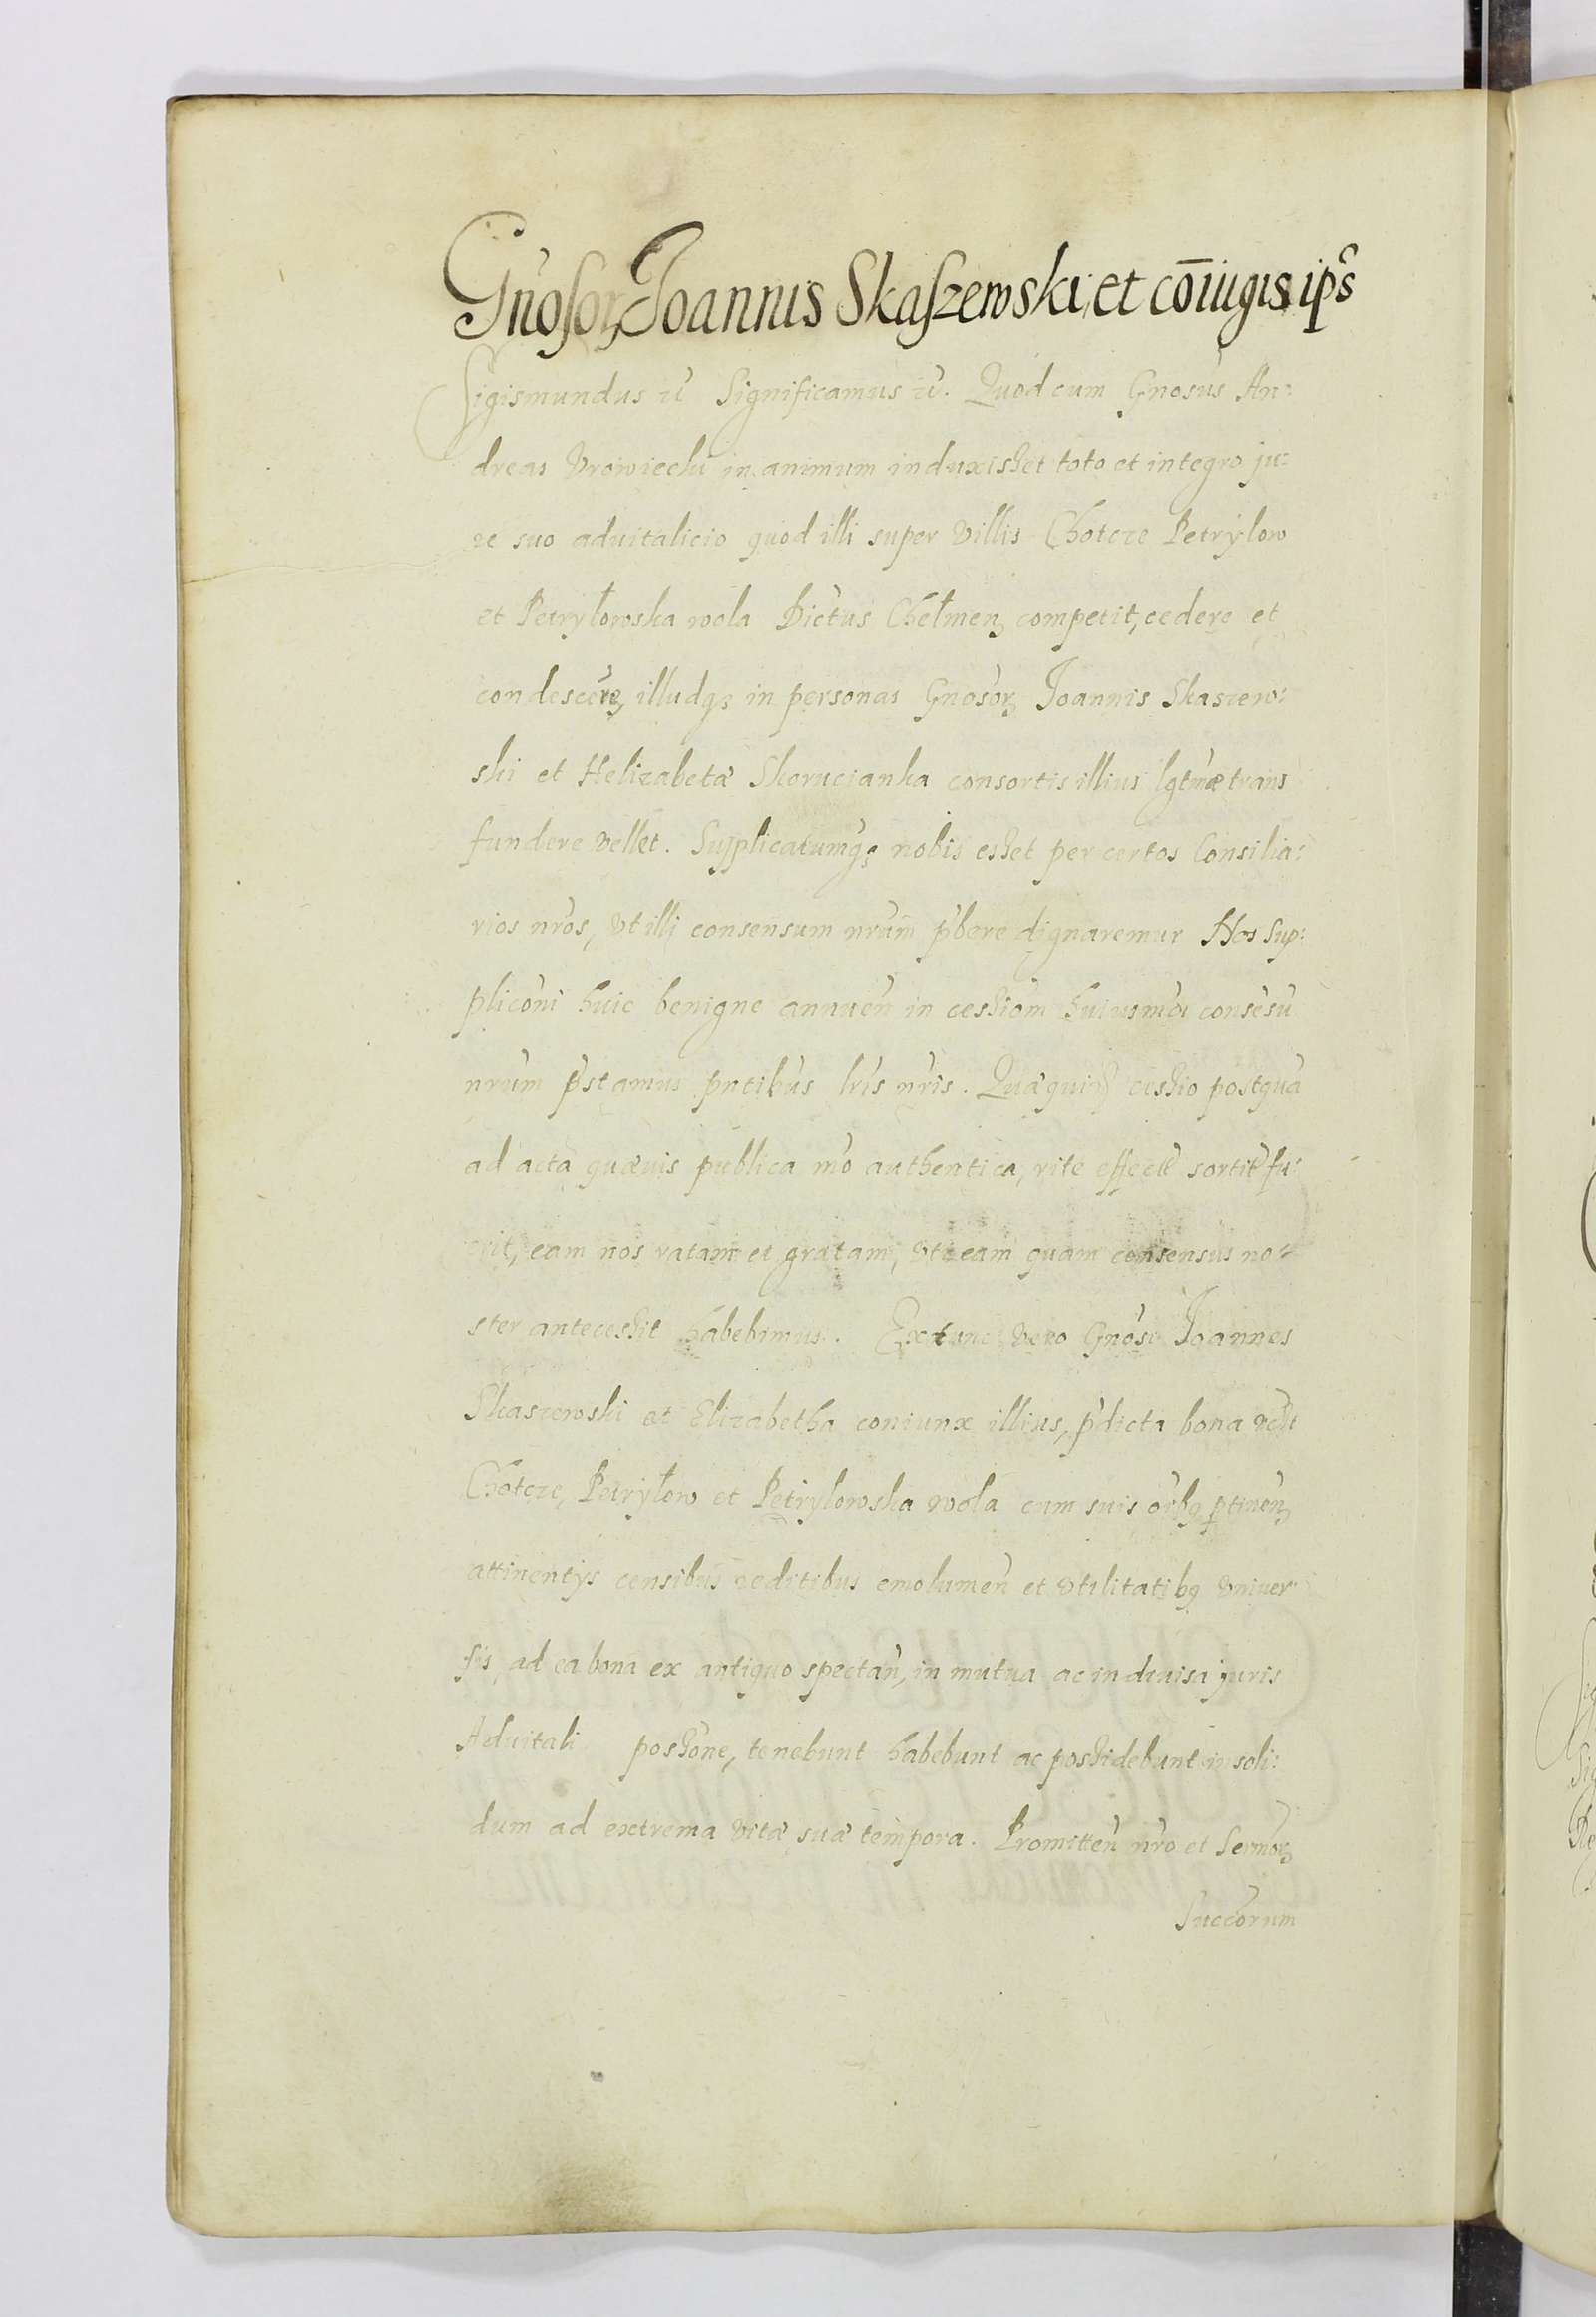 Gn̄osor Joannis Skaszewski et cōiugis ip̄s
Sigismundus etc̄ Significamus etc̄. Quod cum Gnosus An:
dreas Vrowiecki in animum induxisset toto et integro ju:
re suo aduitalicio quod illi super Villis Chotcze Petrylow
et Petryłowska wola Dictus Chełmen competit, cedere et
condescēre, illudq₃ in personas Gn̄osor Joannis Skaszew:
ski et Helizabetæ Skorucianka consortis illius lgt̄mæ trans
fundere vellet. Supplicatumq₃ nobis esset per certos Consilia:
rios n̄ros, Vt illi consensum n̄rum p̄bere dignaremur Nos Sup:
plicōni huic benigne annuen̄ in cessiōm huiusmōi consēsū
n̄rum p̄stamus pn̄tibus l̄ris n̄ris. Quæquid̄ cessio postquā
ad acta quæuis publica mō authentica, rite effectū sortit̄ fu:
erit, eam nos ratam et gratam, Vt eam quam consensus no:
ster antecessit habebimus. Extunc vero Gnōsi Joannes
Skaszewski et Elizabetha coniunx illius, p̄dicta bona vc̄lt
Chotcze, Petryłow et Petrylowska wola cum suis oībq ptinen
attinentijs censibus reditibus emolumen̄ et Vtilitatibq Vniuer
sis ad ea bona ex antiquo spectan̄, in mutua ac indiuisa juris
Aduitali possōne, tenebunt habebunt ac possidebunt in soli:
dum ad extrema Vitæ suæ tempora. Promitten̄ n̄ro et Sermor
Succōrum